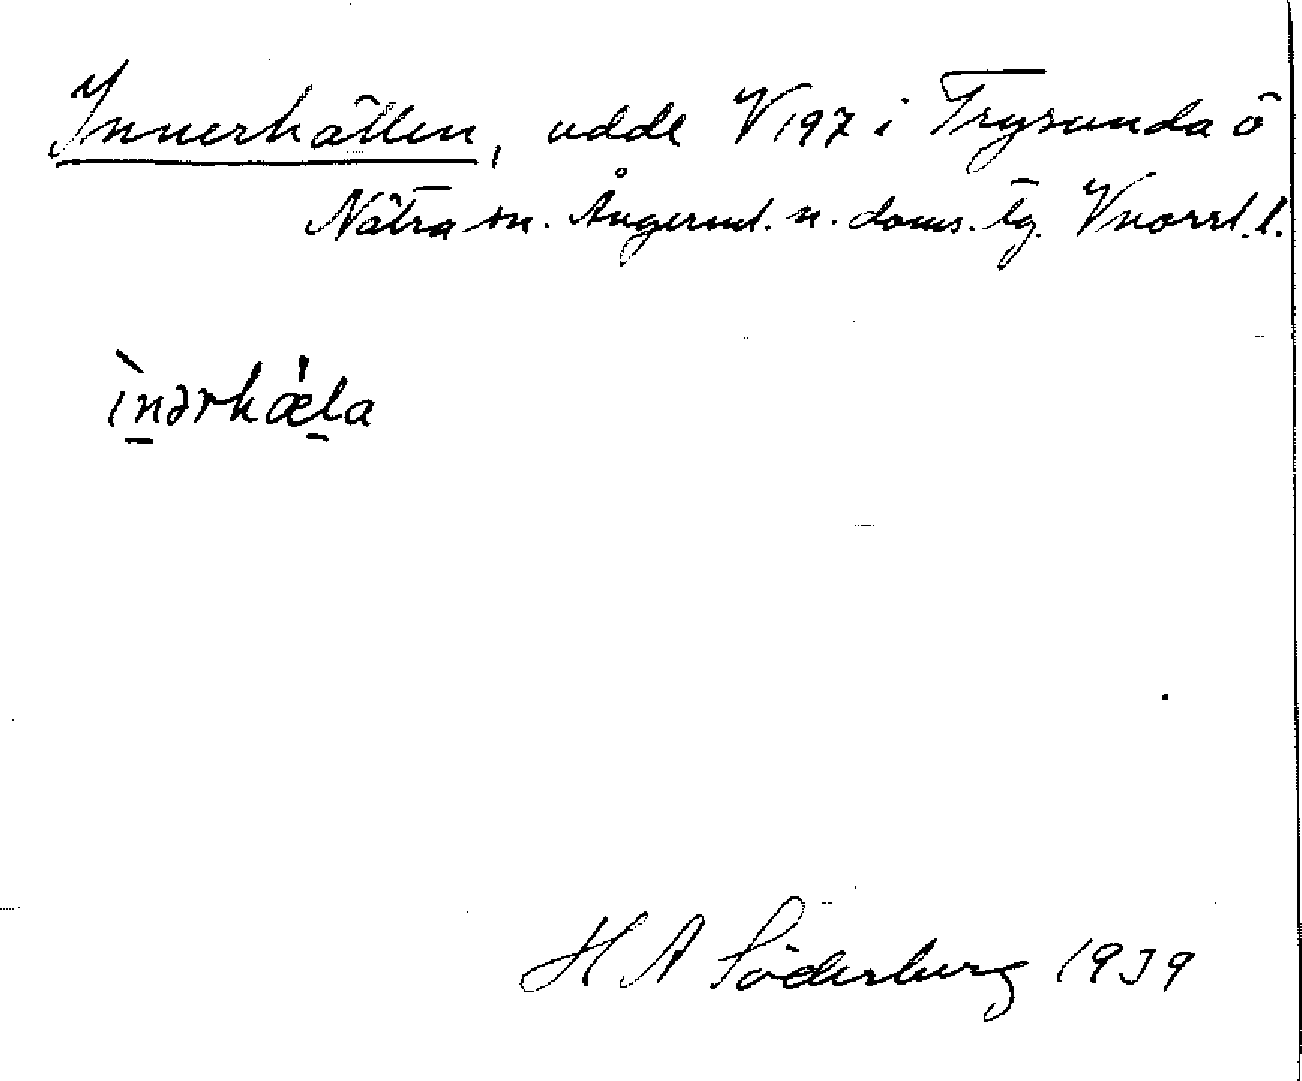 Innerhällen, udde V197 i Trysunda ö
Nätra sn. Ångerml. n. doms. tg. Vnorrl. l.
ìnərhæ̀la
H A Söderberg 1939